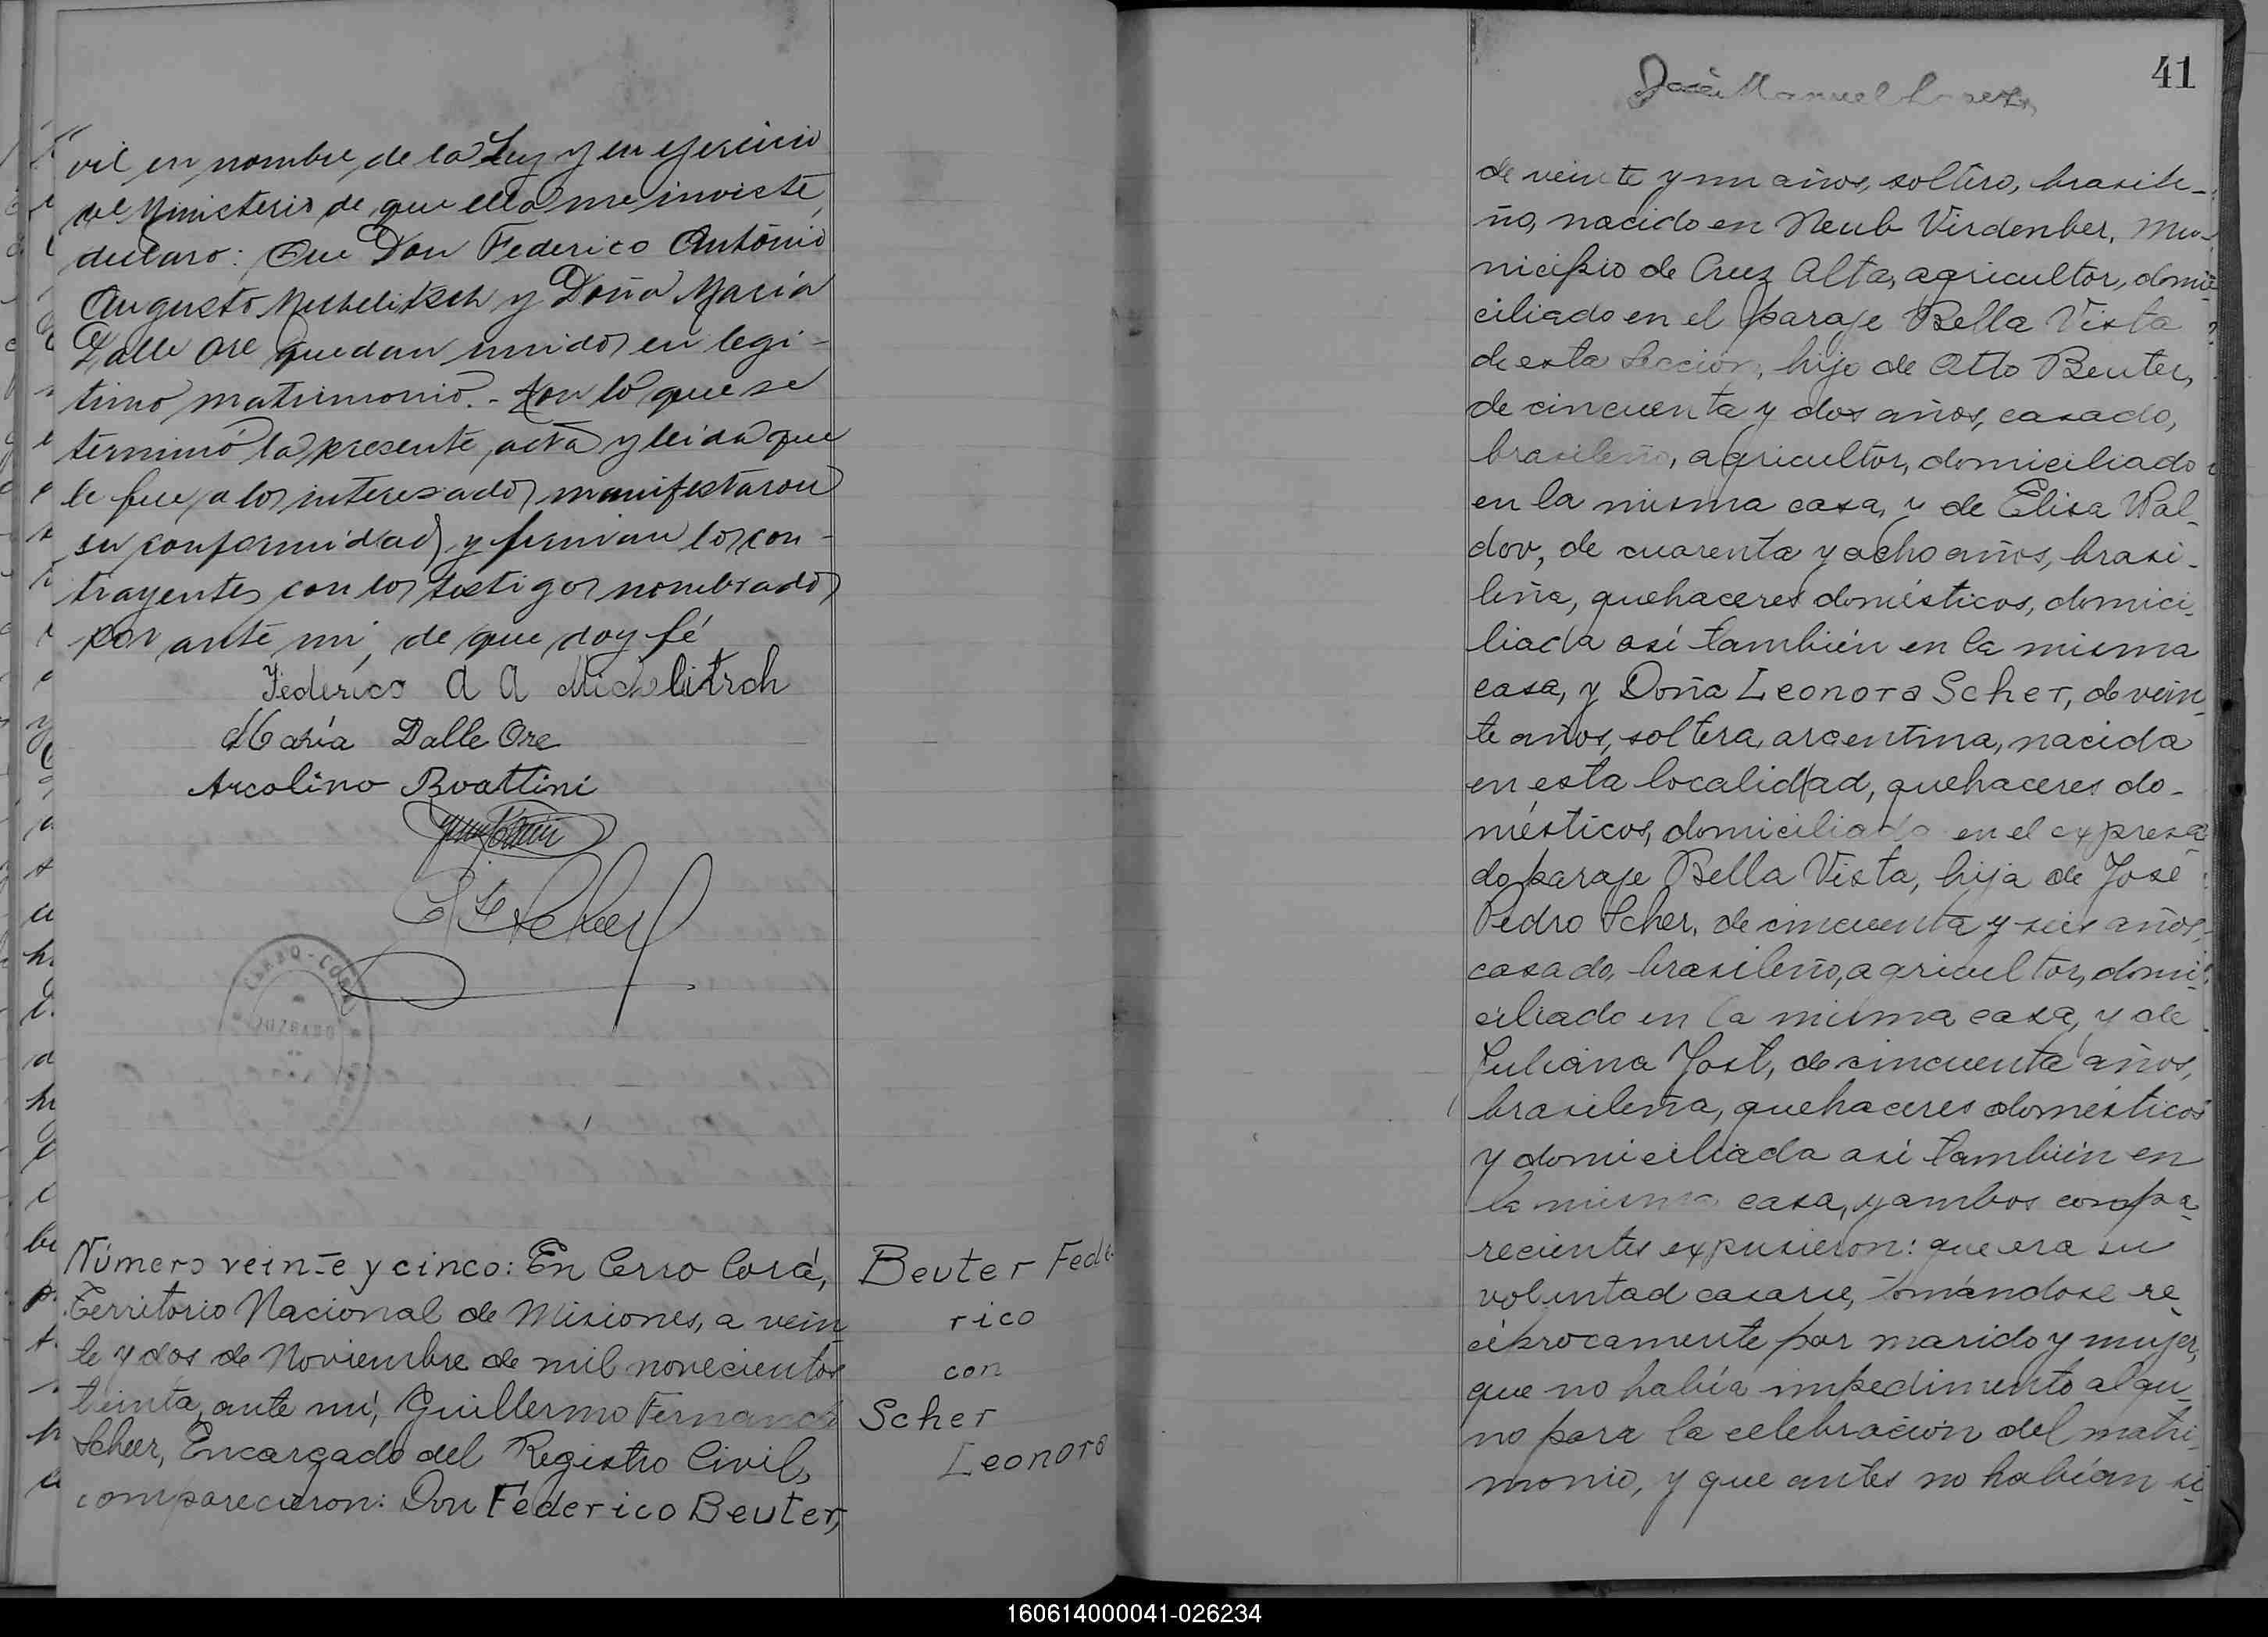 vil en nombre de la Ley y en ejercicio
del Ministerio de que ella me inviste,
declaro: Que Don Federico António
Augusto Michelitsch y Doña María
Dalle Ore quedan unidos en legi-
timo matrimonio.- Con lo que se
terminó la presente acta y leida que
le fue a los interesados manifestaron
su conformidad y firman los con-
trayentes con los testigos nombrados
por ante mi, de que doy fé
Federico A A Michelitsch
María Dalle Ore
Arcolino Boattini
CERRO-CORA
JUZGADO
Número veinte y cinco: En Cerro Corá,
Territorio Nacional de Misiones, a vein
te y dos de Noviembre de mil novecientos
treinta, ante mí, Guillermo Fernando
Scheer, Encargado del Registro Civil,
comparecieron: Don Federico Beuter,
Beuter Fede
rico
con
Scher
Leonora
41
José Manuel
de veinte y un años, soltero, brasile-
ño, nacido en Neub Virdenber, Mu-
nicipio de Cruz Alta, agricultor, domi-
ciliado en el paraje Bella Vista
de esta Sección, hijo de Otto Beuter,
de cincuenta y dos años, casado,
brasileño, agricultor, domiciliado
en la misma casa, y de Elisa Wal-
dov, de cuarenta y ocho años, brasi-
leña, quehaceres domésticos, domici-
liada así también en la misma
casa, y Doña Leonora Scher, de vein-
te años, soltera, argentina, nacida
en esta localidad, quehaceres do-
mésticos, domiciliada en el expresa
do paraje Bella Vista, hija de José
Pedro Scher, de cincuenta y seis años,
casado, brasileño, agricultor, domi-
ciliado en la misma casa, y de
Juliana Jost, de cincuenta años,
brasileña, quehaceres domésticos
y domiciliada así también en
la misma casa, y ambos compa-
recientes expusieron: que era su
voluntad casarse, tomándose re-
ciprocamente por marido y mujer,
que no había impedimento algu-
no para la celebración del matri-
monio, y que antes no habían si-
160614000041-026234